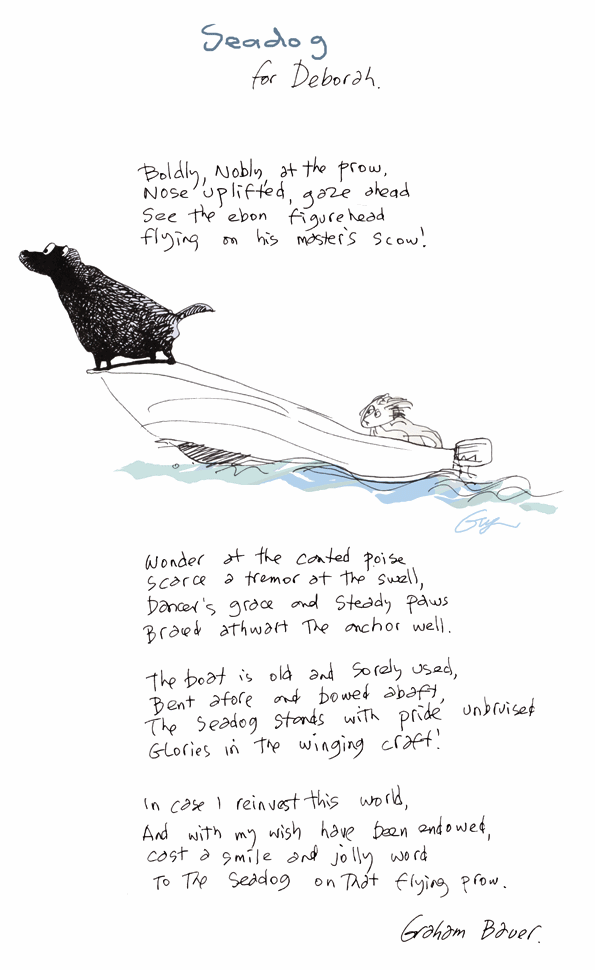 Seadog
for Deborah.
Boldly, Nobly, at the prow,
Nose uplifted, gaze ahead
See the ebon figurehead
flying on his master's scow!
Wonder at the canted poise
Scarce a tremor at the swell,
Dancer's grace and steady paws
Braced athwart the anchor well.
The boat is old and sorely used,
Bent afore and bowed abaft,
The Seadog stands with pride unbruised
Glories in the winging craft!
In case I reinvest this world,
And with my wish have been endowed,
cast a smile and jolly word
To The Seadog on That flying prow.
Graham Bauer.